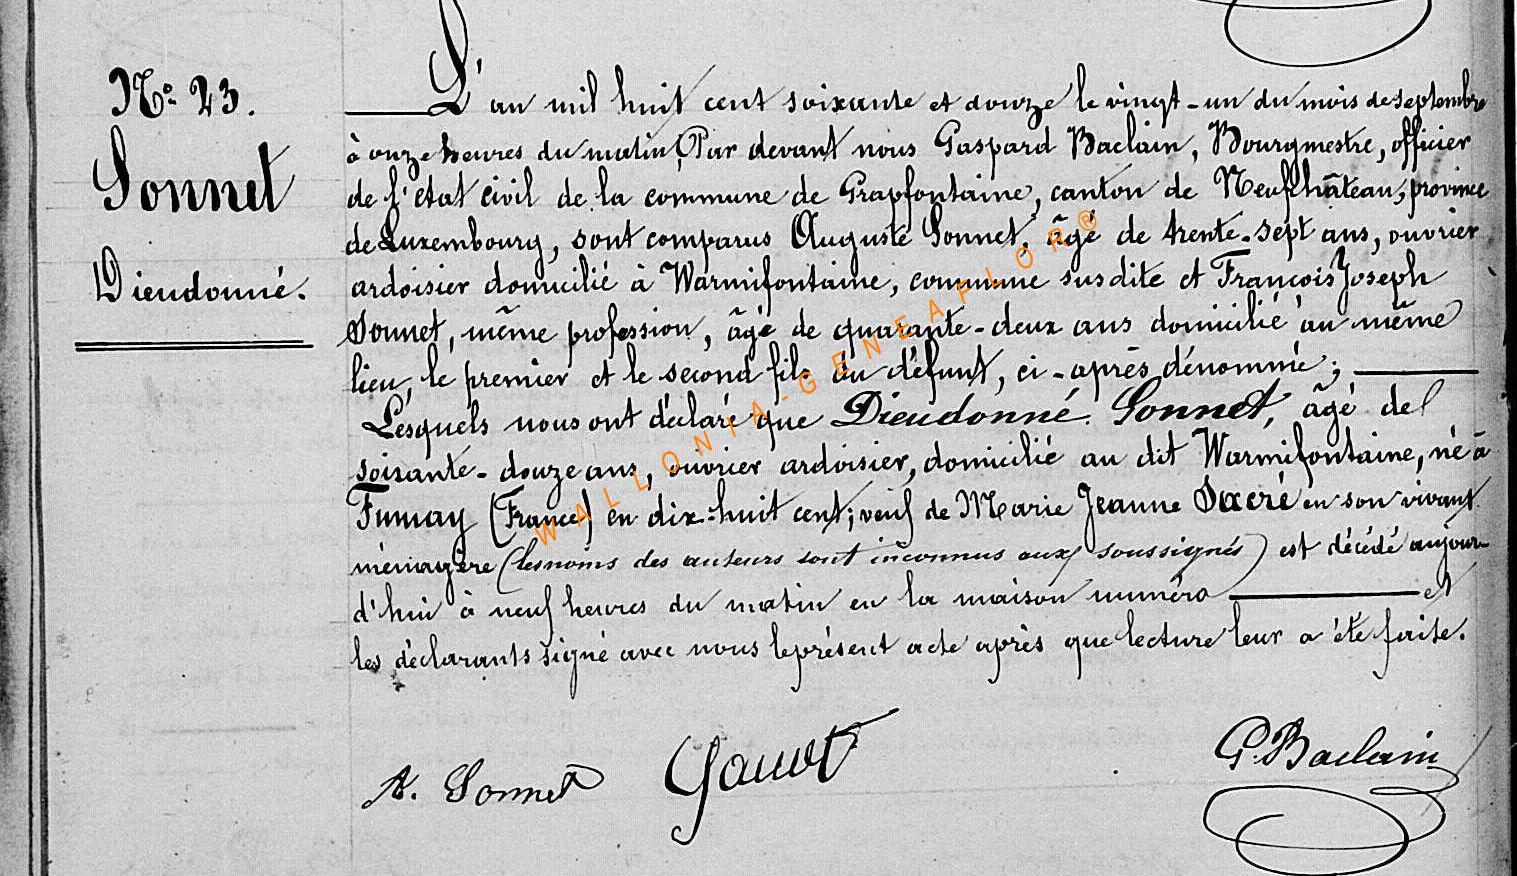 N° 23.
Sonnet
Dieudonné.
L'an mil huit cent soixante et douze le vingt-un du mois de septembre
à onze heures du matin, Par devant nous Gaspard Baclain, Bourgmestre, officier
de l'état civil de la commune de Grapfontaine, canton de Neufchâteau, province
de Luxembourg, sont comparus Auguste Sonnet, âgé de trente-sept ans, ouvrier
ardoisier domicilié à Warmifontaine, commune susdite et François Joseph
Sonnet, même profession, âgé de quarante-deux ans domicilié au même
lieu, le premier et le second fils du défunt, ci-après dénommé;
Lesquels nous ont déclaré que Dieudonné Sonnet, âgé de
soixante-douze ans, ouvrier ardoisier, domicilié au dit Warmifontaine, né à
Fumay (France) en dix-huit cent; veuf de Marie Jeanne Sacré en son vivant
ménagère (les noms des auteurs sont inconnus aux soussignés) est décédé aujour-
d'hui à neuf heures du matin en la maison numéro et
les déclarants signé avec nous le présent acte après que lecture leur a été faite.
A. Sonnet
G. Baclain
WALLONIA-GENEAFLOR®